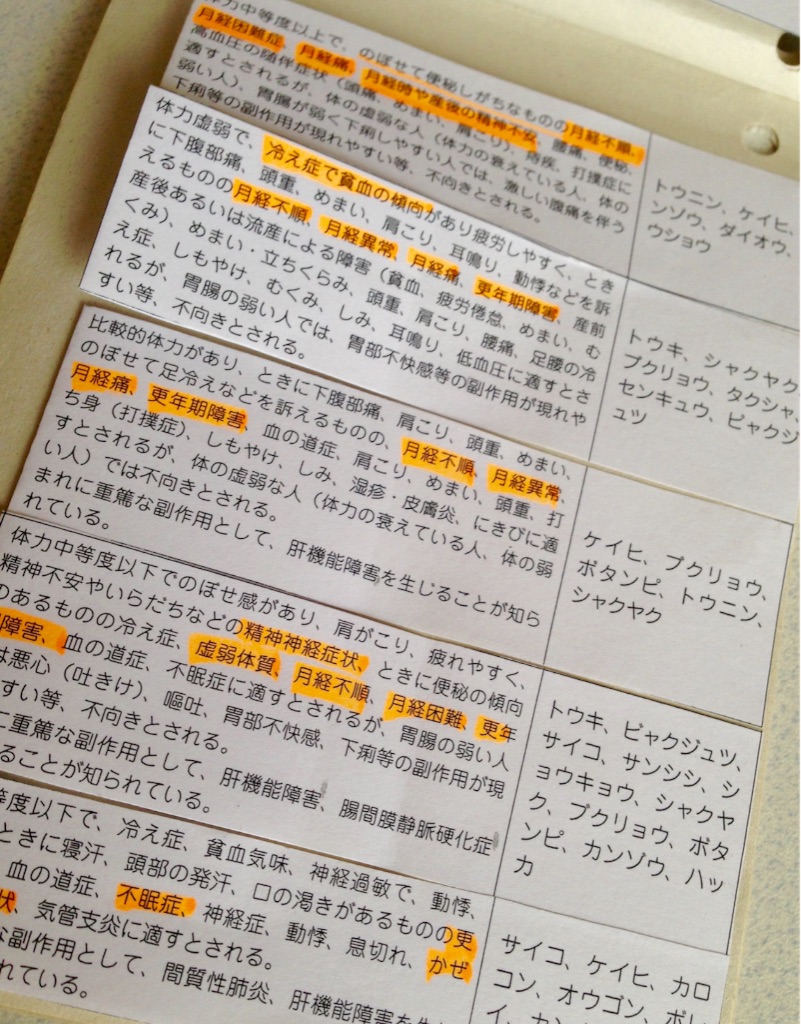 体力中等度以上で、のぼせて便秘しがちなものの月経不順、
月経困難症、月経痛、月経時や産後の精神不安、腰痛、便秘、
高血圧の随伴症状（頭痛、めまい、肩こり）、痔疾、打撲症に
適すとされるが、体の虚弱な人（体力の衰えている人、体の
弱い人）、胃腸が弱く下痢しやすい人では、激しい腹痛を伴う
下痢等の副作用が現れやすい等、不向きとされる。
トウニン、ケイヒ、
ンゾウ、ダイオウ、
ウショウ
体力虚弱で、冷え症で貧血の傾向があり疲労しやすく、とき
に下腹部痛、頭重、めまい、肩こり、耳鳴り、動悸などを訴
えるものの月経不順、月経異常、月経痛、更年期障害、産前
産後あるいは流産による障害（貧血、疲労倦怠、めまい、む
くみ）、めまい・立ちくらみ、頭重、肩こり、腰痛、足腰の冷
え症、しもやけ、むくみ、しみ、耳鳴り、低血圧に適すとさ
れるが、胃腸の弱い人では、胃部不快感等の副作用が現れや
すい等、不向きとされる。
トウキ、シャクヤク
ブクリョウ、タクシャ、
センキュウ、ビャクジ
ュツ
比較的体力があり、ときに下腹部痛、肩こり、頭重、めまい、
のぼせて足冷えなどを訴えるものの、月経不順、月経異常、
月経痛、更年期障害、血の道症、肩こり、めまい、頭重、打
ち身（打撲症）、しもやけ、しみ、湿疹・皮膚炎、にきびに適
すとされるが、体の虚弱な人（体力の衰えている人、体の弱
い人）では不向きとされる。
まれに重篤な副作用として、肝機能障害を生じることが知ら
れている。
ケイヒ、ブクリョウ、
ボタンピ、トウニン、
シャクヤク
体力中等度以下でのぼせ感があり、肩がこり、疲れやすく、
精神不安やいらだちなどの精神神経症状、ときに便秘の傾向
のあるものの冷え症、虚弱体質、月経不順、月経困難、更年
障害、血の道症、不眠症に適すとされるが、胃腸の弱い人
は悪心（吐きけ）、嘔吐、胃部不快感、下痢等の副作用が現
すい等、不向きとされる。
に重篤な副作用として、肝機能障害、腸間膜静脈硬化症
ることが知られている。
トウキ、ビャクジュツ、
サイコ、サンシシ、シ
ョウキョウ、シャクヤ
ク、ブクリョウ、ボタ
ンピ、カンゾウ、ハッ
カ
等度以下で、冷え症、貧血気味、神経過敏で、動悸、
ときに寝汗、頭部の発汗、口の渇きがあるものの更
血の道症、不眠症、神経症、動悸、息切れ、かぜ
状、気管支炎に適すとされる。
な副作用として、間質性肺炎、肝機能障害を生
れている。
サイコ、ケイヒ、カロ
コン、オウゴン、ボレ
イ、カン